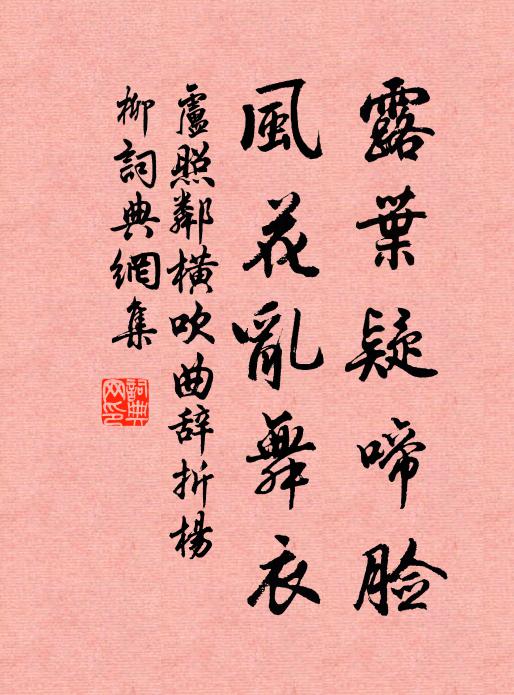 露葉疑啼臉
風花亂舞衣
盧照鄰橫吹曲辞折楊
柳詞典網集
詞典
网印